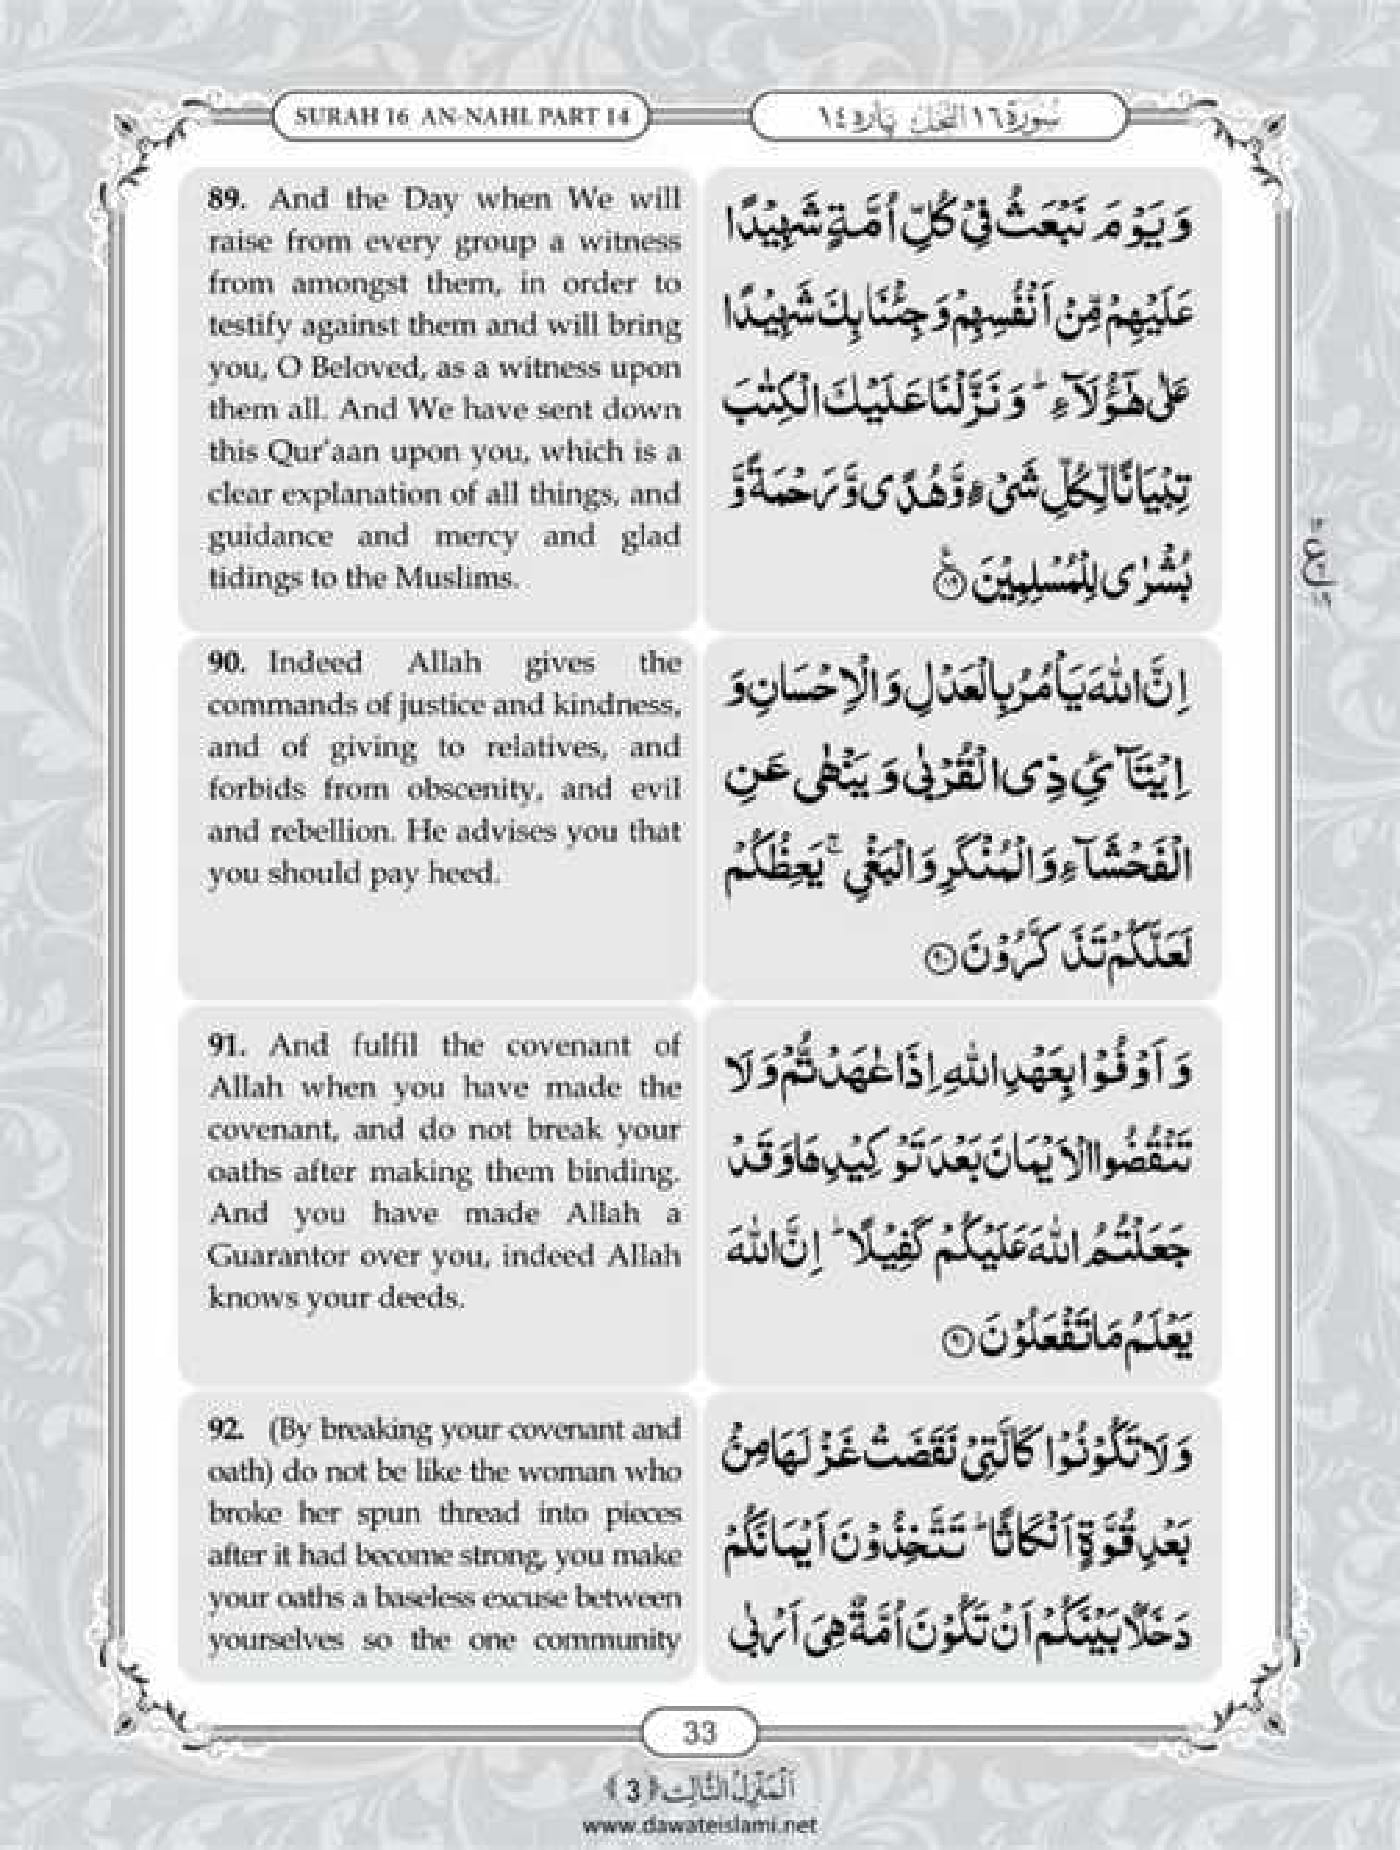 SURAH 16 AN-NAHL PART 14
سُورَة ١٦ النَّحْل پارہ ١٤
89. And the Day when We will
raise from every group a witness
from amongst them, in order to
testify against them and will bring
you, O Beloved, as a witness upon
them all. And We have sent down
this Qur'aan upon you, which is a
clear explanation of all things, and
guidance and mercy and glad
tidings to the Muslims.
وَ یَوْمَ نَبْعَثُ فِیْ كُلِّ اُمَّةٍ شَهِیْدًا
عَلَیْهِمْ مِّنْ اَنْفُسِهِمْ وَ جِئْنَا بِكَ شَهِیْدًا
عَلٰی هٰۤؤُلَآءِ ؕ وَ نَزَّلْنَا عَلَیْكَ الْكِتٰبَ
تِبْیَانًا لِّكُلِّ شَیْءٍ وَّ هُدًی وَّ رَحْمَةً وَّ
بُشْرٰی لِلْمُسْلِمِیْنَ ۠﴿۸۹﴾
90. Indeed Allah gives the
commands of justice and kindness,
and of giving to relatives, and
forbids from obscenity, and evil
and rebellion. He advises you that
you should pay heed.
اِنَّ اللّٰهَ یَاْمُرُ بِالْعَدْلِ وَ الْاِحْسَانِ وَ
اِیْتَآئِ ذِی الْقُرْبٰی وَ یَنْهٰی عَنِ
الْفَحْشَآءِ وَ الْمُنْكَرِ وَ الْبَغْیِ ۚ یَعِظُكُمْ
لَعَلَّكُمْ تَذَكَّرُوْنَ ﴿۹۰﴾
91. And fulfil the covenant of
Allah when you have made the
covenant, and do not break your
oaths after making them binding.
And you have made Allah a
Guarantor over you, indeed Allah
knows your deeds.
وَ اَوْفُوْا بِعَهْدِ اللّٰهِ اِذَا عٰهَدْتُّمْ وَ لَا
تَنْقُضُوا الْاَیْمَانَ بَعْدَ تَوْكِیْدِهَا وَ قَدْ
جَعَلْتُمُ اللّٰهَ عَلَیْكُمْ كَفِیْلًا ؕ اِنَّ اللّٰهَ
یَعْلَمُ مَا تَفْعَلُوْنَ ﴿۹۱﴾
92. (By breaking your covenant and
oath) do not be like the woman who
broke her spun thread into pieces
after it had become strong, you make
your oaths a baseless excuse between
yourselves so the one community
وَ لَا تَكُوْنُوْا كَالَّتِیْ نَقَضَتْ غَزْلَهَا مِنْۢ
بَعْدِ قُوَّةٍ اَنْكَاثًا ؕ تَتَّخِذُوْنَ اَیْمَانَكُمْ
دَخَلًۢا بَیْنَكُمْ اَنْ تَكُوْنَ اُمَّةٌ هِیَ اَرْبٰی
33
اَلْمَنْزِلُ الثَّالِث ﴿3﴾
www.dawateislami.net